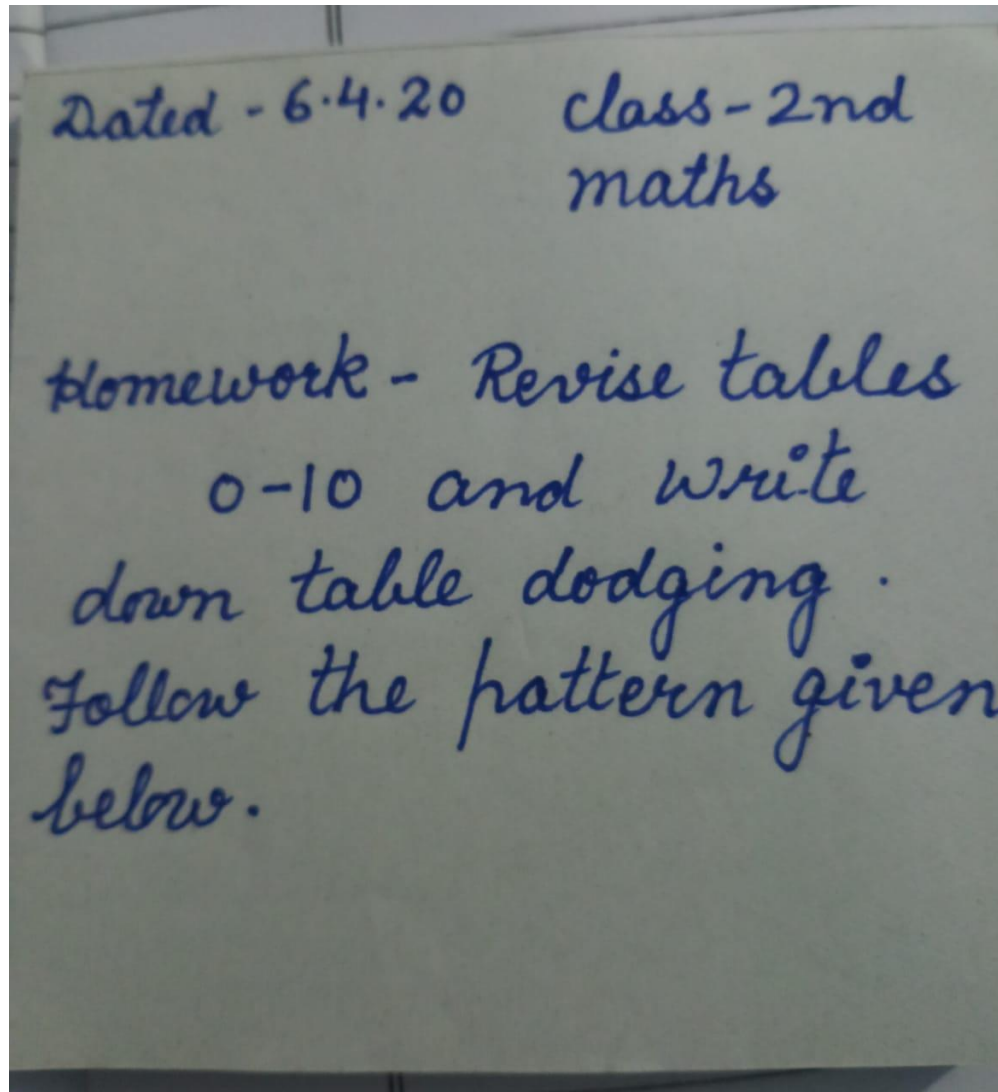 Dated - 6.4.20 class - 2nd
maths
Homework - Revise tables
0-10 and write
down table dodging.
Follow the pattern given
below.